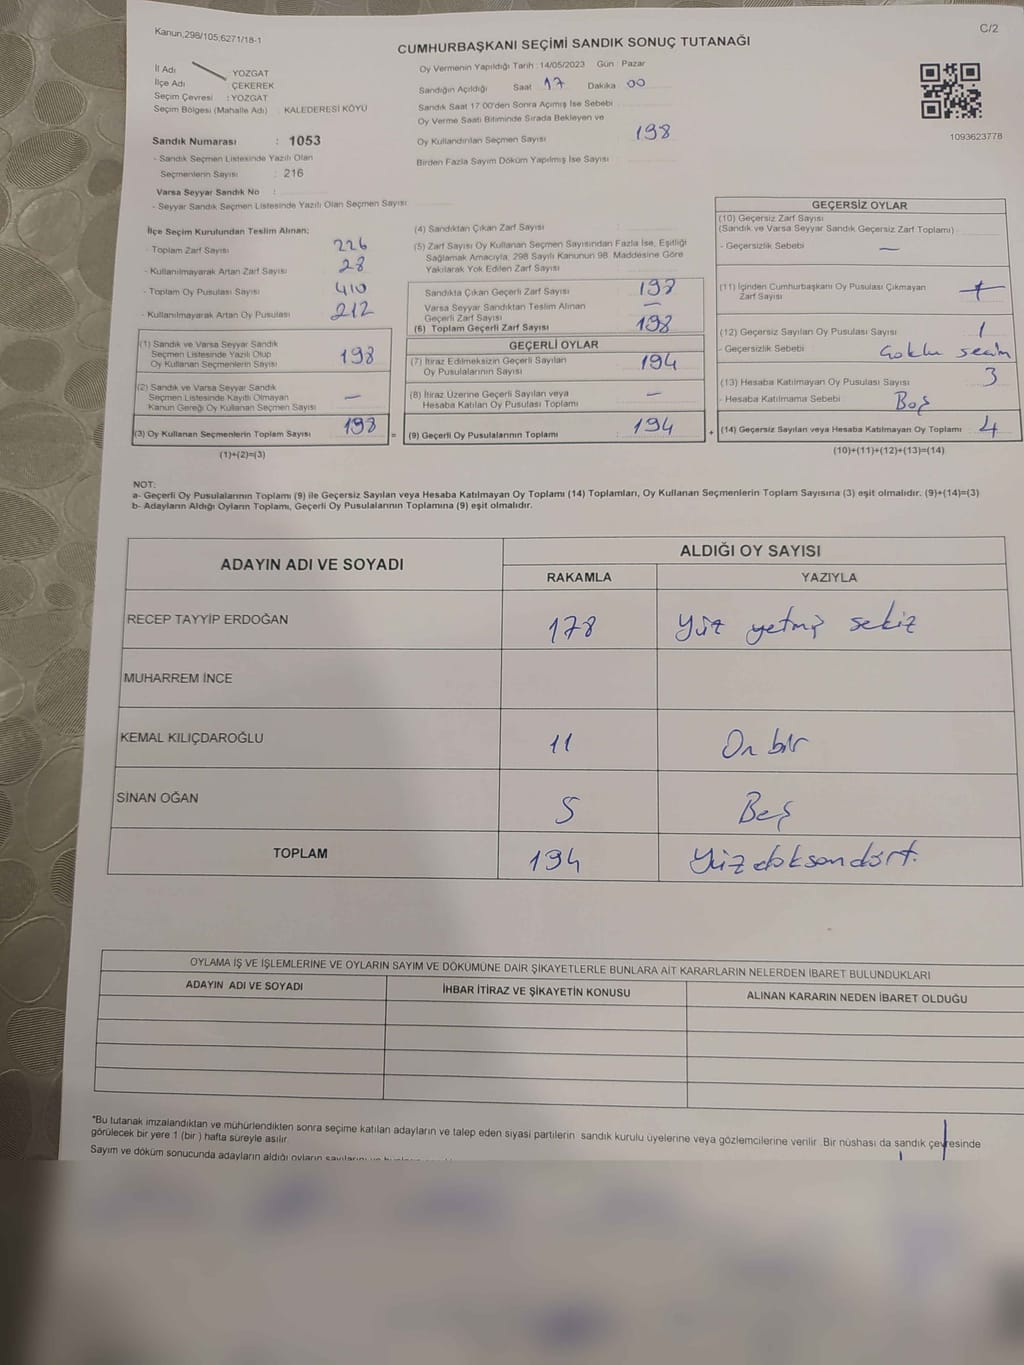 Kanun,298/105,6271/18-1
C/2
CUMHURBAŞKANI SEÇİMİ SANDIK SONUÇ TUTANAĞI
İl Adı YOZGAT
İlçe Adı ÇEKEREK
Seçim Çevresi : YOZGAT
Seçim Bölgesi (Mahalle Adı) : KALEDERESİ KÖYÜ
Sandık Numarası : 1053
- Sandık Seçmen Listesinde Yazılı Olan
Seçmenlerin Sayısı : 216
Varsa Seyyar Sandık No :
- Seyyar Sandık Seçmen Listesinde Yazılı Olan Seçmen Sayısı
Oy Vermenin Yapıldığı Tarih : 14/05/2023 Gün : Pazar
Sandığın Açıldığı Saat 17 Dakika 00
Sandık Saat 17:00'den Sonra Açımış İse Sebebi
Oy Verme Saati Bitiminde Sırada Bekleyen ve
Oy Kullandırılan Seçmen Sayısı 198
Birden Fazla Sayım Döküm Yapılmış İse Sayısı
1093623778
İlçe Seçim Kurulundan Teslim Alınan;
- Toplam Zarf Sayısı 226
- Kullanılmayarak Artan Zarf Sayısı 28
- Toplam Oy Pusulası Sayısı 410
- Kullanılmayarak Artan Oy Pusulası 212
(1) Sandık ve Varsa Seyyar Sandık
Seçmen Listesinde Yazılı Olup
Oy Kullanan Seçmenlerin Sayısı 198
(2) Sandık ve Varsa Seyyar Sandık
Seçmen Listesinde Kayıtlı Olmayan
Kanun Gereği Oy Kullanan Seçmen Sayısı —
(3) Oy Kullanan Seçmenlerin Toplam Sayısı 198
(1)+(2)=(3)
(4) Sandıktan Çıkan Zarf Sayısı :
(5) Zarf Sayısı Oy Kullanan Seçmen Sayısından Fazla İse, Eşitliği
Sağlamak Amacıyla, 298 Sayılı Kanunun 98. Maddesine Göre
Yakılarak Yok Edilen Zarf Sayısı
Sandıkta Çıkan Geçerli Zarf Sayısı 198
Varsa Seyyar Sandıktan Teslim Alınan
Geçerli Zarf Sayısı —
(6) Toplam Geçerli Zarf Sayısı 198
GEÇERLİ OYLAR
(7) İtiraz Edilmeksizin Geçerli Sayılan
Oy Pusulalarının Sayısı 194
(8) İtiraz Üzerine Geçerli Sayılan veya
Hesaba Katılan Oy Pusulası Toplamı —
= (9) Geçerli Oy Pusulalarının Toplamı : 194 +
GEÇERSİZ OYLAR
(10) Geçersiz Zarf Sayısı
(Sandık ve Varsa Seyyar Sandık Geçersiz Zarf Toplamı)
- Geçersizlik Sebebi —
(11) İçinden Cumhurbaşkanı Oy Pusulası Çıkmayan
Zarf Sayısı
(12) Geçersiz Sayılan Oy Pusulası Sayısı 1
- Geçersizlik Sebebi Çoklu seçim
(13) Hesaba Katılmayan Oy Pusulası Sayısı 3
- Hesaba Katılmama Sebebi Boş
(14) Geçersiz Sayılan veya Hesaba Katılmayan Oy Toplamı 4
(10)+(11)+(12)+(13)=(14)
NOT:
a- Geçerli Oy Pusulalarının Toplamı (9) ile Geçersiz Sayılan veya Hesaba Katılmayan Oy Toplamı (14) Toplamları, Oy Kullanan Seçmenlerin Toplam Sayısına (3) eşit olmalıdır. (9)+(14)=(3)
b- Adayların Aldığı Oyların Toplamı, Geçerli Oy Pusulalarının Toplamına (9) eşit olmalıdır.
ADAYIN ADI VE SOYADI
ALDIĞI OY SAYISI
RAKAMLA YAZIYLA
RECEP TAYYİP ERDOĞAN 178 Yüz yetmiş sekiz
MUHARREM İNCE
KEMAL KILIÇDAROĞLU 11 On bir
SİNAN OĞAN 5 Beş
TOPLAM 194 Yüz doksan dört.
OYLAMA İŞ VE İŞLEMLERİNE VE OYLARIN SAYIM VE DÖKÜMÜNE DAİR ŞİKAYETLERLE BUNLARA AİT KARARLARIN NELERDEN İBARET BULUNDUKLARI
ADAYIN ADI VE SOYADI İHBAR İTİRAZ VE ŞİKAYETİN KONUSU ALINAN KARARIN NEDEN İBARET OLDUĞU
*Bu tutanak imzalandıktan ve mühürlendikten sonra seçime katılan adayların ve talep eden siyasi partilerin sandık kurulu üyelerine veya gözlemcilerine verilir. Bir nüshası da sandık çevresinde
görülecek bir yere 1 (bir ) hafta süreyle asılır.
Sayım ve döküm sonucunda adayların aldığı oyların sayılarını